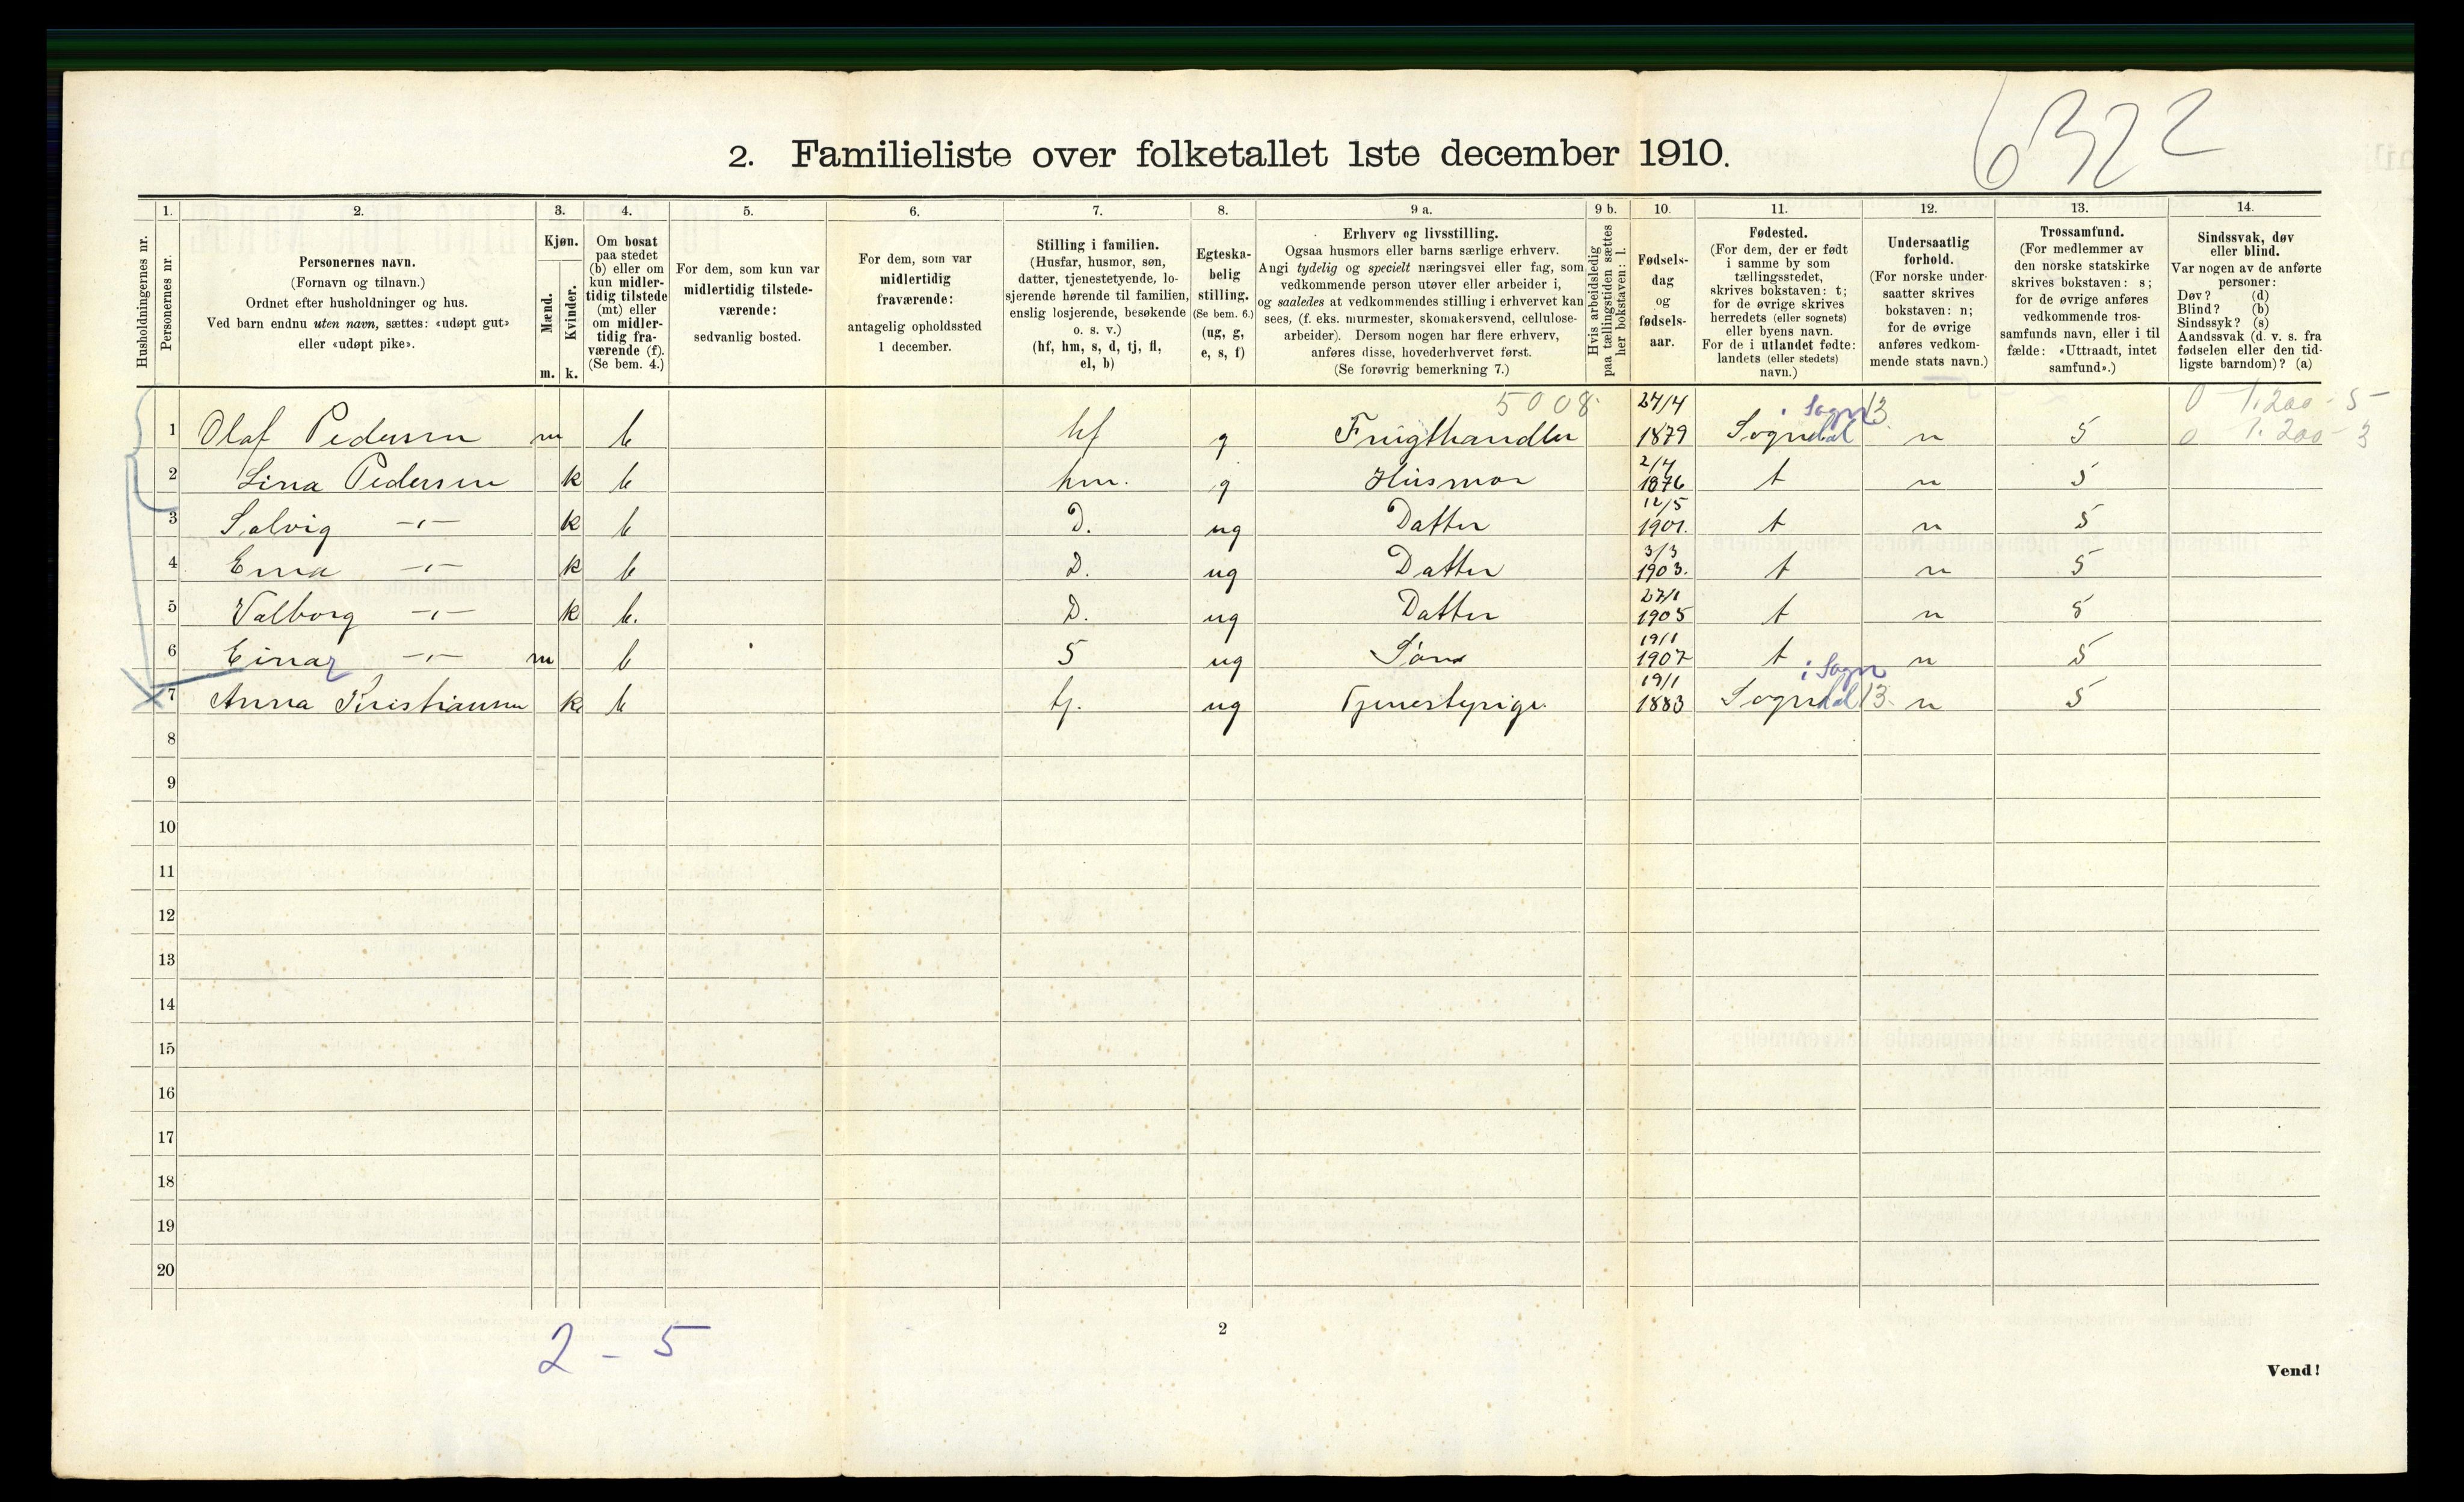 6322
2. Familieliste over folketallet 1ste december 1910.
1. 2. 3. 4. 5. 6. 7. 8. 9 a. 9 b. 10. 11. 12. 13. 14.
Husholdningernes nr.
Personernes nr.
Personernes navn.
(Fornavn og tilnavn.)
Ordnet efter husholdninger og hus.
Ved barn endnu uten navn, sættes: «udøpt gut»
eller «udøpt pike».
Kjøn.
Mænd.
Kvinder.
m. k.
Om bosat
paa stedet
(b) eller om
kun midler-
tidig tilstede
(mt) eller
om midler-
tidig fra-
værende (f).
(Se bem. 4.)
For dem, som kun var
midlertidig tilstede-
værende:
sedvanlig bosted.
For dem, som var
midlertidig
fraværende:
antagelig opholdssted
1 december.
Stilling i familien.
(Husfar, husmor, søn,
datter, tjenestetyende, lo-
sjerende hørende til familien,
enslig losjerende, besøkende
o. s. v.)
(hf, hm, s, d, tj, fl,
el, b)
Egteska-
belig
stilling.
(Se bem. 6.)
(ug, g,
e, s, f)
Erhverv og livsstilling.
Ogsaa husmors eller barns særlige erhverv.
Angi tydelig og specielt næringsvei eller fag, som
vedkommende person utøver eller arbeider i,
og saaledes at vedkommendes stilling i erhvervet kan
sees, (f. eks. murmester, skomakersvend, cellulose-
arbeider). Dersom nogen har flere erhverv,
anføres disse, hovederhvervet først.
(Se forøvrig bemerkning 7.)
Hvis arbeidsledig
paa tællingstiden sættes
her bokstaven: l.
Fødsels-
dag
og
fødsels-
aar.
Fødested.
(For dem, der er født
i samme by som
tællingsstedet,
skrives bokstaven: t;
for de øvrige skrives
herredets (eller sognets)
eller byens navn.
For de i utlandet fødte:
landets (eller stedets)
navn.)
Undersaatlig
forhold.
(For norske under-
saatter skrives
bokstaven: n;
for de øvrige
anføres vedkom-
mende stats navn.)
Trossamfund.
(For medlemmer av
den norske statskirke
skrives bokstaven: s;
for de øvrige anføres
vedkommende tros-
samfunds navn, eller i til-
fælde: «Uttraadt, intet
samfund».)
Sindssvak, døv
eller blind.
Var nogen av de anførte
personer:
Døv? (d)
Blind? (b)
Sindssyk? (s)
Aandssvak (d. v. s. fra
fødselen eller den tid-
ligste barndom)? (a)
5008 27/4 i Sogn 13 0 - 1.200 - 5
1 Olaf Pedersen m b hf g Frugthandler 1879 Sogndal n S 0 1.200 - 3
2/4
2 Lina Pedersen k b hm. g Husmor 1876 t n S
12/5
3 Solvig -„- k b D. ug Datter 1901. t n S
3/3
4 Erna -„- k b D. ug Datter 1903. t n S
27/1
5 Valborg -„- k b. D. ug Datter 1905 t n S
19/1
6 Einar -„- m b S ug Søn 1907 t n S
19/1 i Sogn
7 Anna Kristiansen k b tj. ug Tjenestepige 1883 Sogndal 13 n S
8
9
10
11
12
13
14
15
16
17
18
19
20
2 - 5
2
Vend!